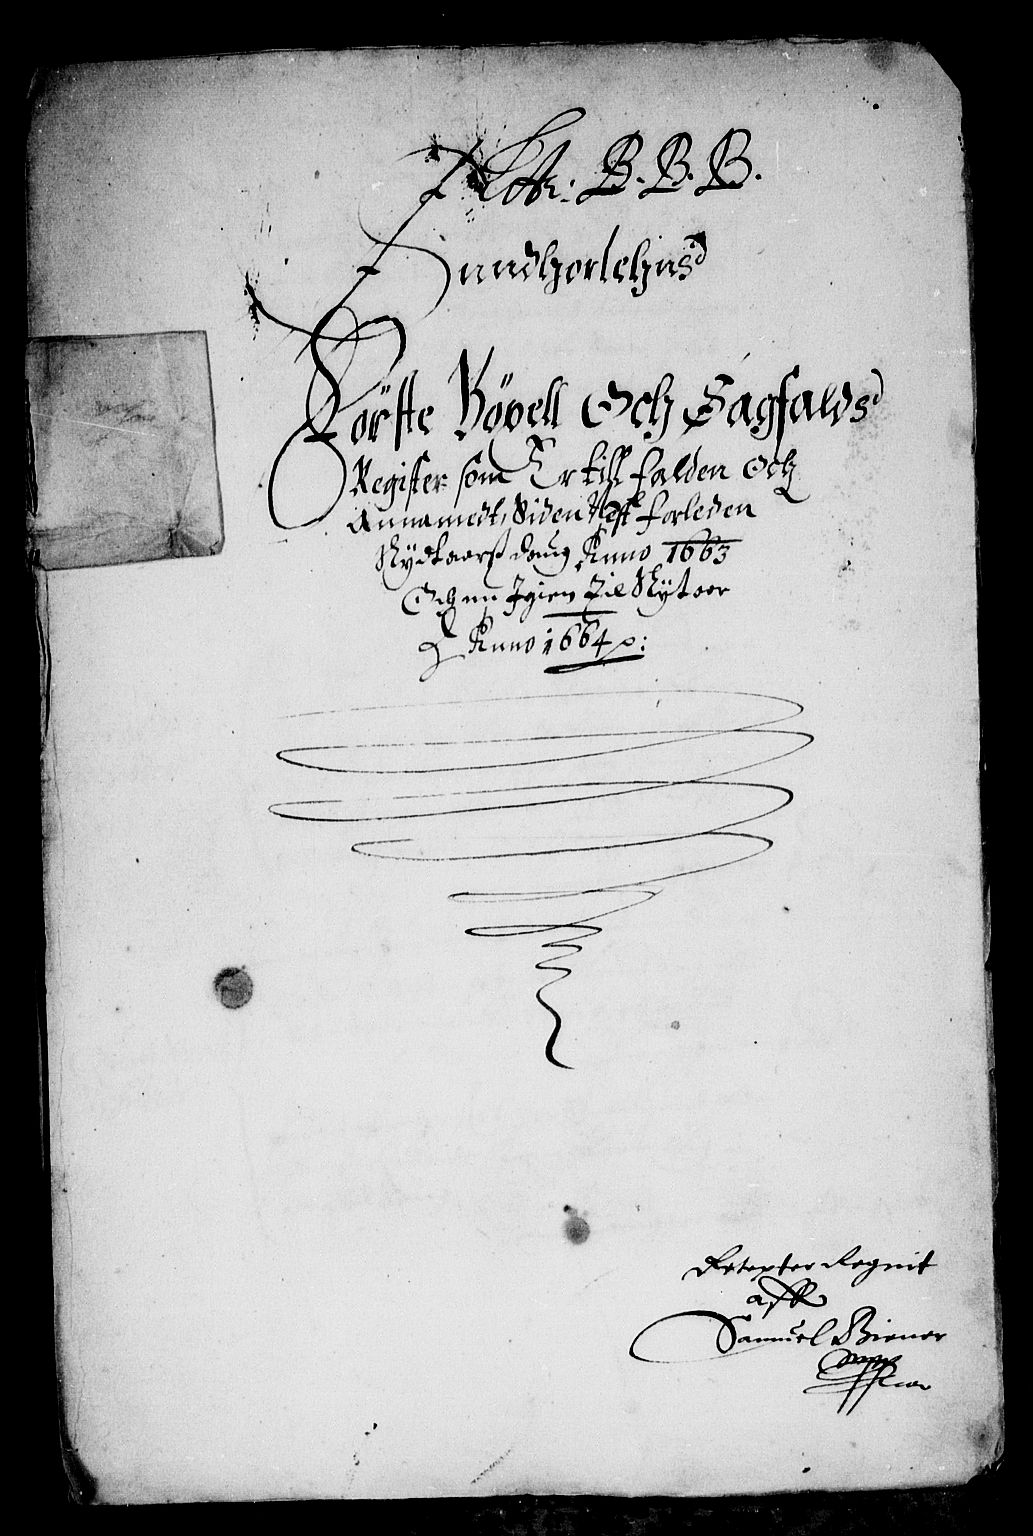 Litr: B. B. B.
Sundhorlehns
Förste Bövell Och Sagfalds
Register som Er till falden Och
Annamedt, Siden Nest forleden
Nydtaars daug Anno 1663
Och nu Igien Til Nytaar
Anno 1664 p:
Regnit
aff
Samuel Biener